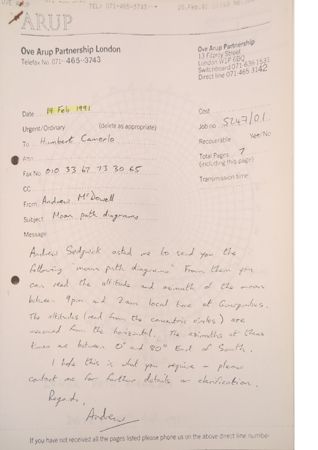 ARUP
Ove Arup Partnership London
Telefax No. 071-465-3743
Ove Arup Partnership
13 Fitzroy Street
London W1P 6BQ
Switchboard 071-636 1531
Direct line 071-465 3142
Date 14 Feb 1991
Cost
Urgent/Ordinary (delete as appropriate)
Job no
To Humbert Camerlo
Recoverable Yes/No
Attn
Total Pages 7
(including this page)
Fax No 010 33 67 73 30 65
Transmission time
CC
From Andrew McDowell
Subject Moon path diagrams
Message
Andrew Sedgwick asked me to send you the
following "moon path diagrams". From them you
can read the altitude and azimuth of the moon
between 9pm and 2am local time at
The altitudes (read from the concentric circles) are
measured from the horizontal. The azimuths at these
times are between 0° and 80° East of South.
I hope this is what you require - please
contact me for further details or clarification.
Regards,
Andrew
If you have not received all the pages listed please phone us on the above direct line number